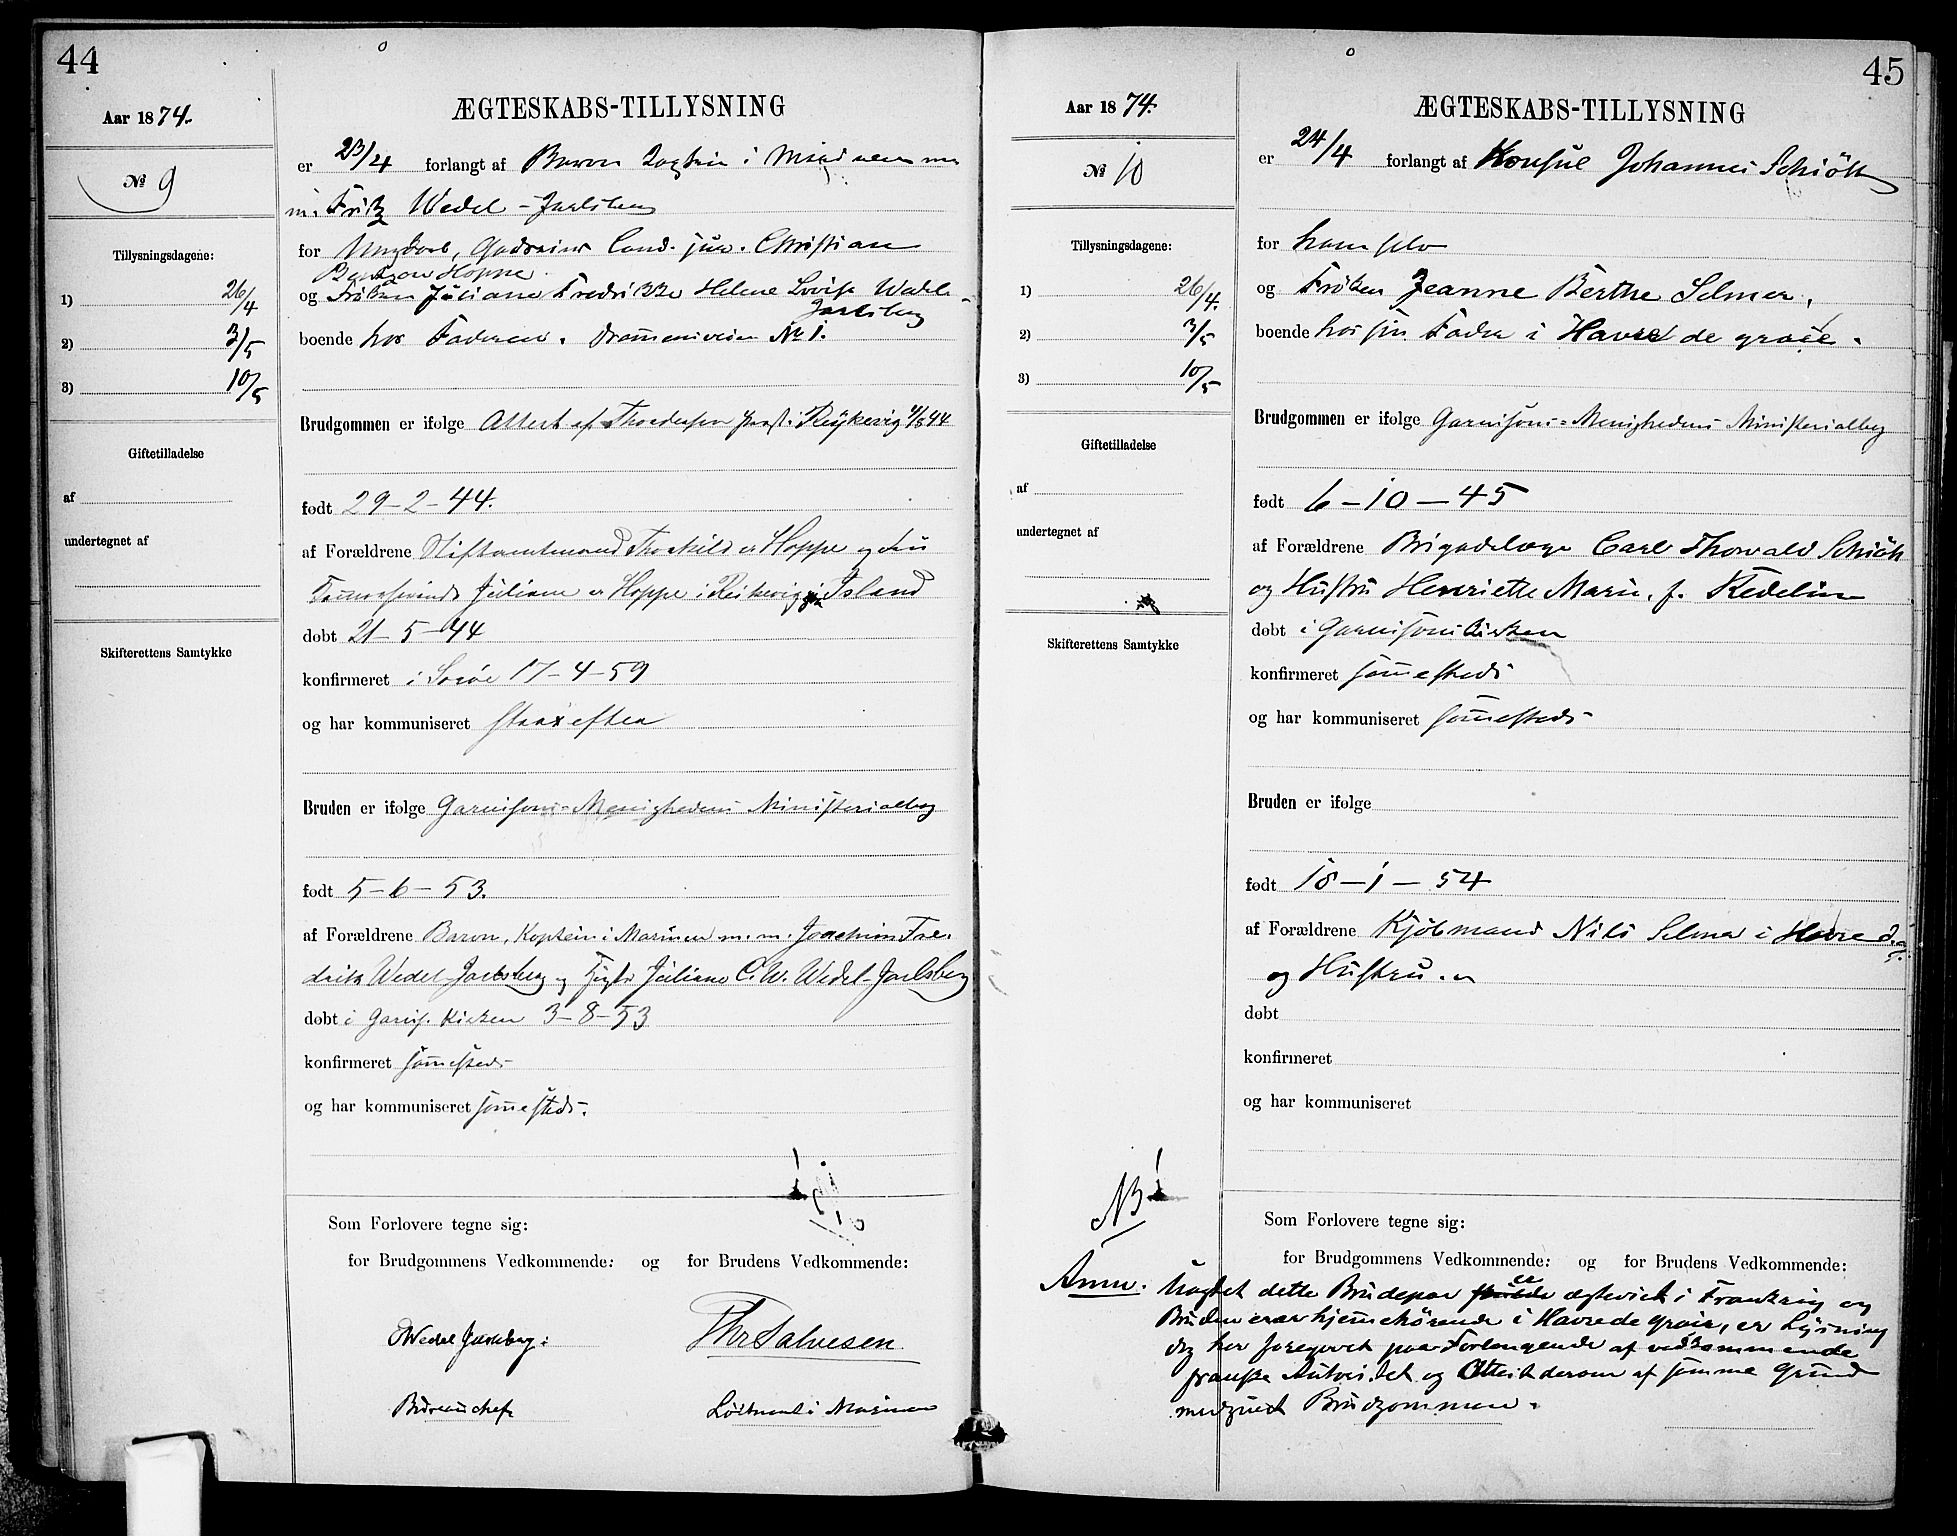 44
Aar 1874.
№ 9
Tillysningsdagene:
1) 26/4
2) 3/5
3) 10/5
Giftetilladelse
af
undertegnet af
Skifterettens Samtykke
ÆGTESKABS-TILLYSNING
er 23/4 forlangt af Baron Kaptein i Marinen m.
m. Fritz Wedel-Jarlsberg
for Ungkarl, Cand. jur. Christian
Bentzon Hoppe
og Frøken Juliane Fredrikke Helene Lovise Wedel-
Jarlsberg
boende hos Faderen. Drammensveien № 1.
Brudgommen er ifølge Attest af Thordersen præst i Reykevig 44
født 29-2-44.
af Forældrene Stiftamtmand Thorkild Hoppe og
Juliane Hoppe i Reikevig Island
døbt 21-5-44
konfirmeret i Soröe 17-4-59
og har kommuniseret strax efter
Bruden er ifølge Garnisons-Menighedens Ministerialbog
født 5-6-53.
af Forældrene Baron, Kaptein i Marinen m.m. Joachim Fre-
drik Wedel-Jarlsberg og Juliane C. W. Wedel-Jarlsberg
døbt i Garnis. Kirken 3-8-53
konfirmeret sammesteds
og har kommuniseret sammesteds.
Som Forlovere tegne sig:
for Brudgommens Vedkommende: og for Brudens Vedkommende:
Wedel Jarlsberg: Thr Salvesen
Bureauchef Löitnant i Marinen
45
Aar 1874.
№ 10
Tillysningsdagene:
1) 26/4.
2) 3/5
3) 10/5
Giftetilladelse
af
undertegnet af
Skifterettens Samtykke
ÆGTESKABS-TILLYSNING
er 24/4 forlangt af Konsul Johannes Schiött
for ham selv
og Fröken Jeanne Berthe Selmer.
boende hos sin Fader i Havre de grace.
Brudgommen er ifølge Garnisons-Menighedens Ministerialbog
født 6-10-45
af Forældrene Brigadelæge Carl Thorvald Schiött
og Hustru Henriette Marie, f.
døbt i Garnisonskirken
konfirmeret sammesteds
og har kommuniseret sammesteds
Bruden er ifølge
født 18-1-54
af Forældrene Kjöbmand Nils Selmer i Havre d. g.
og Hustru
døbt
konfirmeret
og har kommuniseret
Som Forlovere tegne sig:
for Brudgommens Vedkommende: og for Brudens Vedkommende:
NB
Anm. Uagtet dette Brudepar er ægteviet i Frankrig og
Bruden er hjemmehörende i Havre de grace, er Lysning
dog her foregaaet paa Forlangende af vedkommende
franske Autoritet og Attest derom af samme Grund
meddelt Brudgommen.